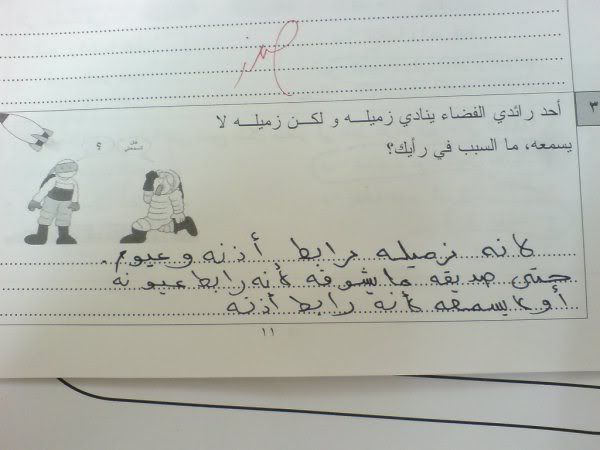 ٣
أحد رائدي الفضاء ينادي زميله و لكن زميله لا
يسمعه، ما السبب في رأيك؟
؟
هل تسمعني
لانه زميله رابط أذنه وعيوم.
حتى صديقه مايشوفه لأنه رابط عيونه
أو لايسمعه لأنه رابط أذنه
١١